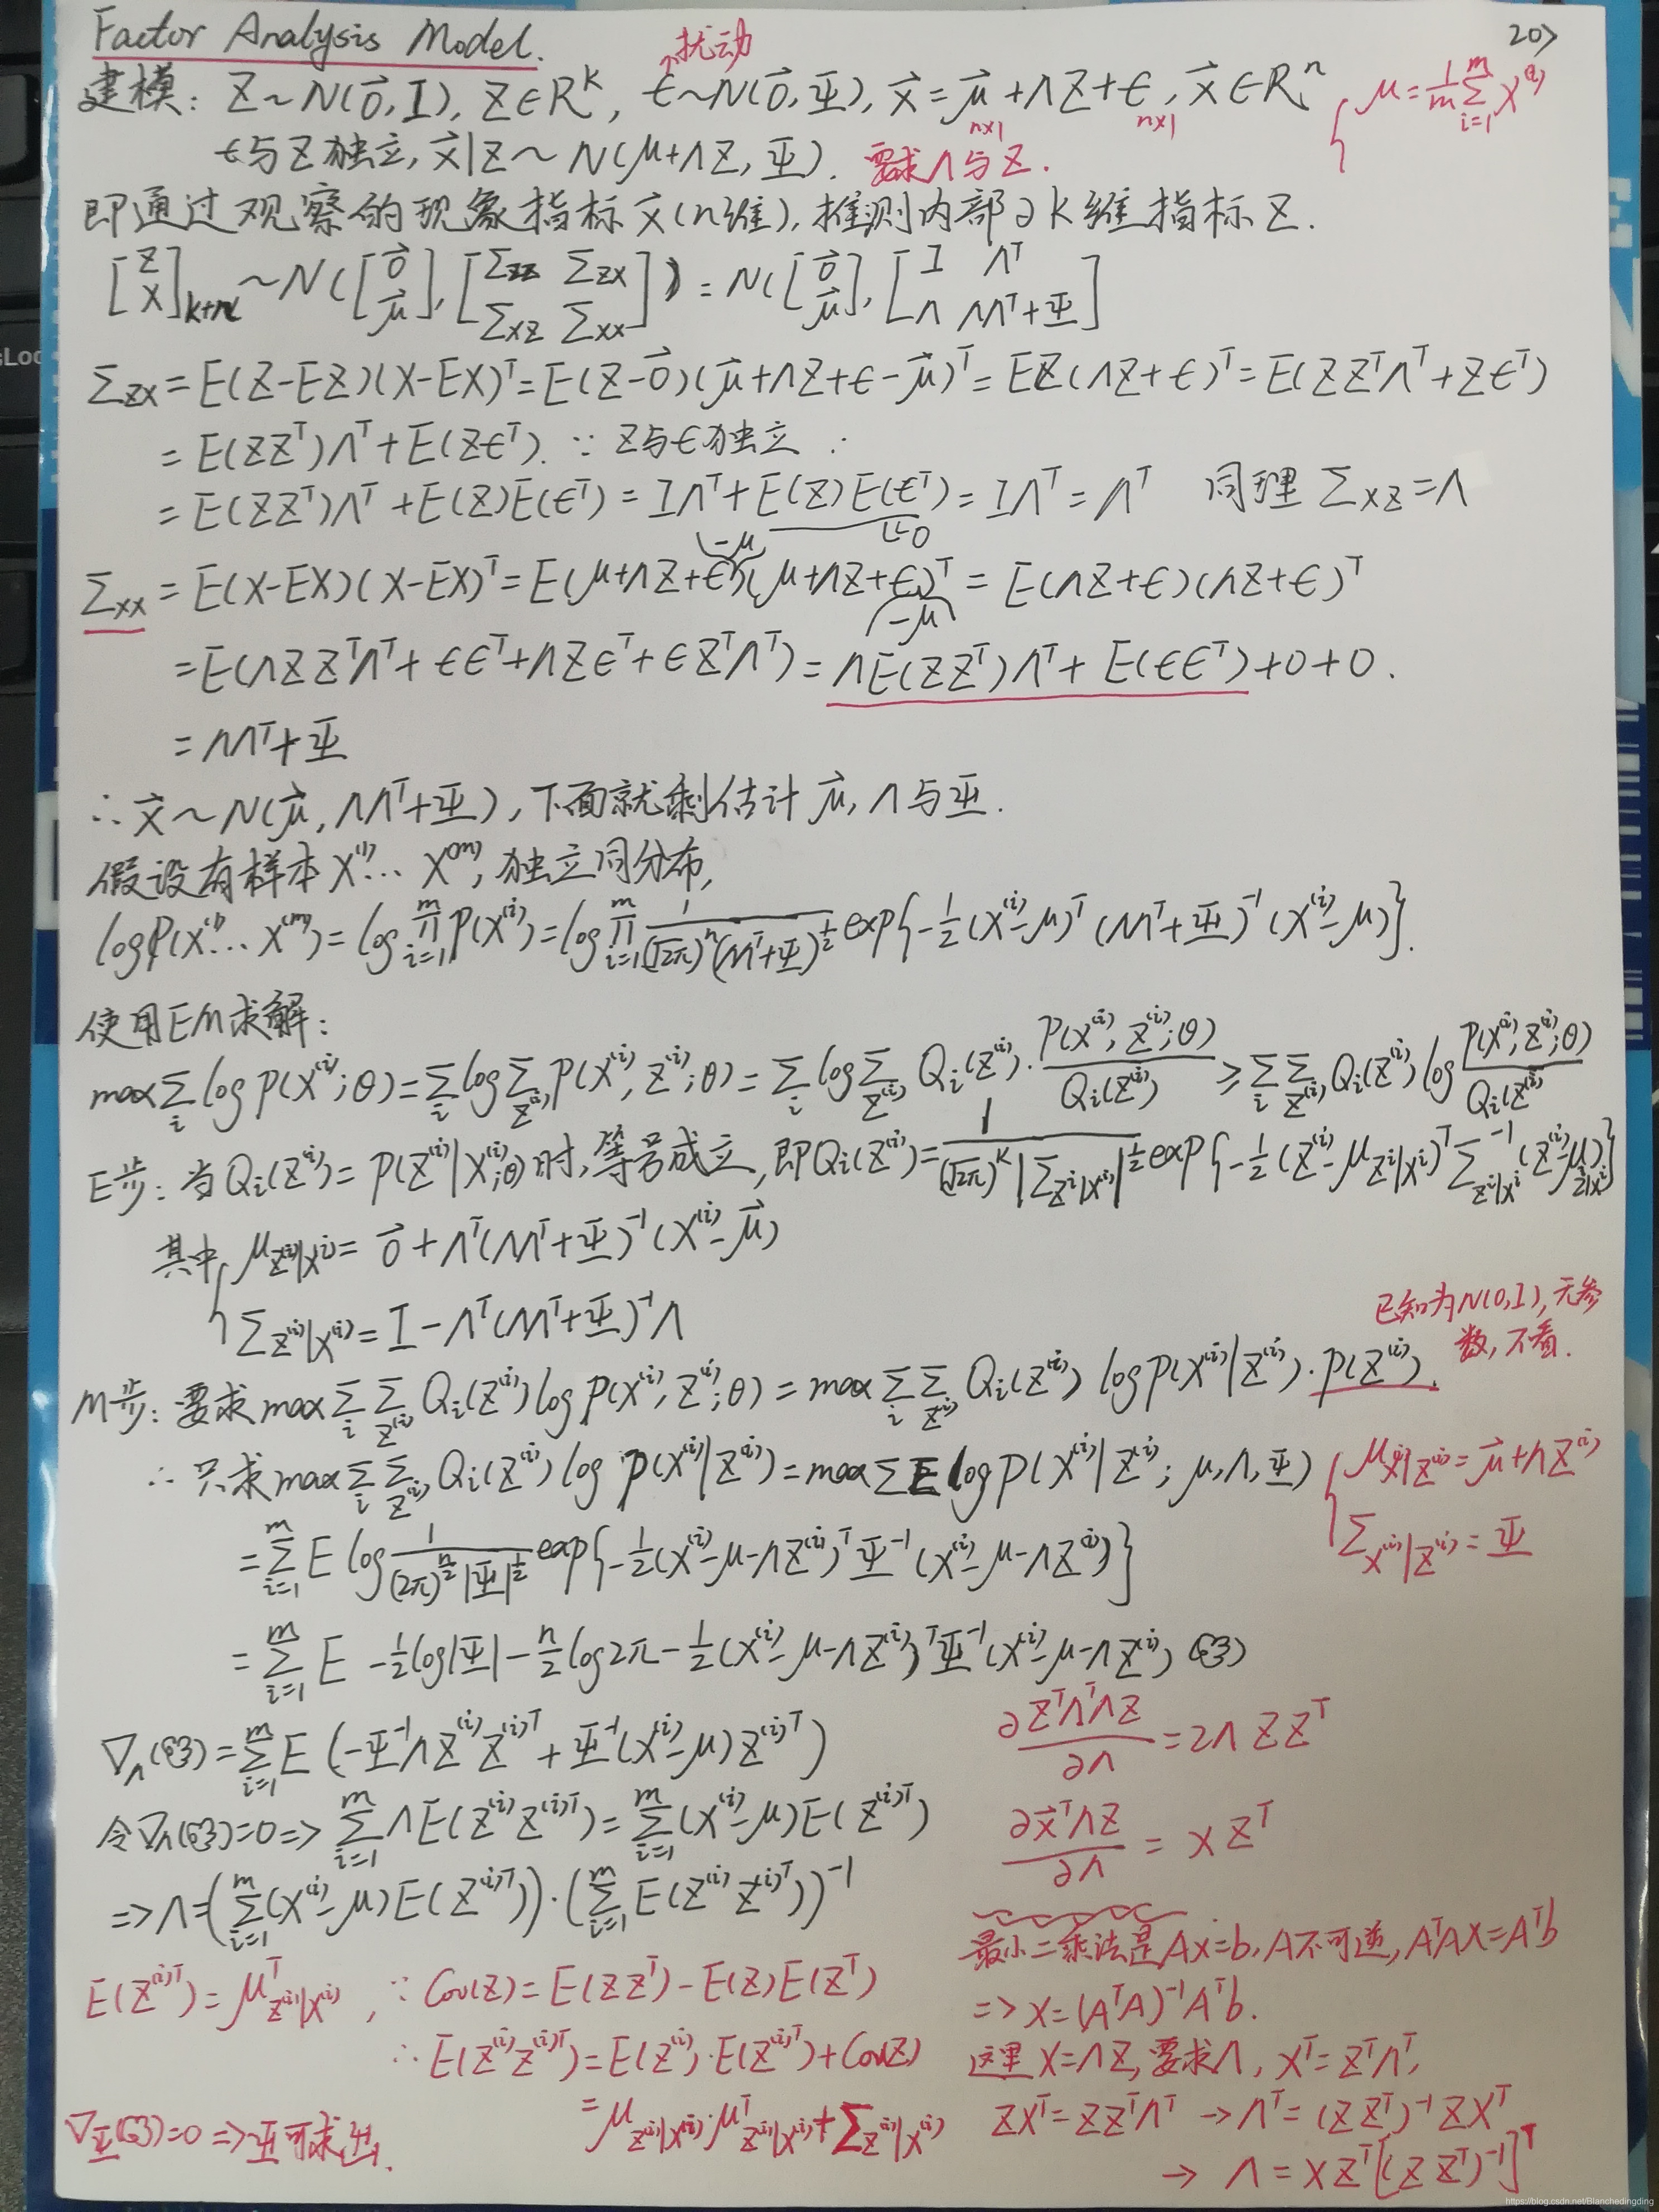 Factor Analysis Model.
207
扰动
建模: Z~N(0⃗,I), Z∈R^k, ϵ~N(0⃗,Ψ), x⃗=μ⃗+ΛZ+ϵ, x⃗∈R^n
n×1 n×1
{μ=1/m Σ_{i=1}^m X^(i)
ϵ与Z独立, x⃗|Z~N(μ+ΛZ,Ψ). 要求Λ与Z.
即通过观察的现象指标x⃗(n维),推测内部的k维指标Z.
[Z X]_{k+n}~N([0⃗ μ⃗],[Σ_ZZ Σ_ZX Σ_XZ Σ_XX])=N([0⃗ μ⃗],[I Λ^T Λ ΛΛ^T+Ψ]
Σ_ZX=E(Z-EZ)(X-EX)^T=E(Z-0⃗)(μ⃗+ΛZ+ϵ-μ⃗)^T=EZ(ΛZ+ϵ)^T=E(ZZ^TΛ^T+Zϵ^T)
=E(ZZ^T)Λ^T+E(Zϵ^T). ∵Z与ϵ独立∴
=E(ZZ^T)Λ^T+E(Z)E(ϵ^T)=IΛ^T+E(Z)E(ϵ^T)=IΛ^T=Λ^T 同理Σ_XZ=Λ
-μ ↳0
Σ_XX=E(X-EX)(X-EX)^T=E(μ+ΛZ+ϵ)(μ+ΛZ+ϵ)^T=E(ΛZ+ϵ)(ΛZ+ϵ)^T
-μ
=E(ΛZZ^TΛ^T+ϵϵ^T+ΛZϵ^T+ϵZ^TΛ^T)=ΛE(ZZ^T)Λ^T+E(ϵϵ^T)+0+0.
=ΛΛ^T+Ψ
∴x⃗~N(μ⃗,ΛΛ^T+Ψ),下面就剩估计μ⃗,Λ与Ψ.
假设有样本X^(1)...X^(m),独立同分布,
logP(X^(1)...X^(m))=log∏_{i=1}^m P(X^(i))=log∏_{i=1}^m 1/((√2π)^n(ΛΛ^T+Ψ)^{1/2}) exp{-1/2(X^(i)-μ)^T(ΛΛ^T+Ψ)^{-1}(X^(i)-μ)}.
使用EM求解:
maxΣ_i log p(X^(i);θ)=Σ_i logΣ_{Z^(i)} p(X^(i),Z^(i);θ)=Σ_i logΣ_{Z^(i)} Q_i(Z^(i))·P(X^(i),Z^(i);θ)/Q_i(Z^(i))≥Σ_iΣ_{Z^(i)} Q_i(Z^(i))log P(X^(i),Z^(i);θ)/Q_i(Z^(i))
E步:当Q_i(Z^(i))=P(Z^(i)|X^(i);θ)时,等号成立,即Q_i(Z^(i))=1/((√2π)^k|Σ_{Z^i|X^(i)}|^{1/2}) exp{-1/2(Z^(i)-μ_{Z^i|X^i})^TΣ_{Z^i|X^i}^{-1}(Z^(i)-μ_{Z^i|X^i})}
其中{μ_{Z^(i)|X^(i)}=0⃗+Λ^T(ΛΛ^T+Ψ)^{-1}(X^(i)-μ⃗)
Σ_{Z^(i)|X^(i)}=I-Λ^T(ΛΛ^T+Ψ)^{-1}Λ
已知为N(0,I),无参
数,不看.
M步:要求maxΣ_iΣ_{Z^(i)} Q_i(Z^(i))log P(X^(i),Z^(i);θ)=maxΣ_iΣ_{Z^(i)} Q_i(Z^(i)) log p(X^(i)|Z^(i))·p(Z^(i)).
∴只求maxΣ_iΣ_{Z^(i)} Q_i(Z^(i))log P(X^(i)|Z^(i))=maxΣE log P(X^(i)|Z^(i);μ,Λ,Ψ)
{μ_{X^(i)|Z^(i)}=μ⃗+ΛZ^(i)
Σ_{X^(i)|Z^(i)}=Ψ
=Σ_{i=1}^m E log 1/((2π)^{n/2}|Ψ|^{1/2}) exp{-1/2(X^(i)-μ-ΛZ^(i))^TΨ^{-1}(X^(i)-μ-ΛZ^(i))}
=Σ_{i=1}^m E -1/2log|Ψ|-n/2log2π-1/2(X^(i)-μ-ΛZ^(i))^TΨ^{-1}(X^(i)-μ-ΛZ^(i))
∂Z^TΛ^TΛZ/∂Λ=2ΛZZ^T
=Σ_{i=1}^m E(-Ψ^{-1}ΛZ^(i)Z^(i)T+Ψ^{-1}(X^(i)-μ)Z^(i)T)
=0=>Σ_{i=1}^m ΛE(Z^(i)Z^(i)T)=Σ_{i=1}^m(X^(i)-μ)E(Z^(i)T)
∂x⃗^TΛZ/∂Λ=XZ^T
=>Λ=(Σ_{i=1}^m(X^(i)-μ)E(Z^(i)T))·(Σ_{i=1}^m E(Z^(i)Z^(i)T))^{-1}
最小二乘法是Ax=b,A不可逆,A^TAX=A^Tb
=>X=(A^TA)^{-1}A^Tb.
E(Z^(i)T)=μ^T_{Z^(i)|X^(i)}, ∵Cov(Z)=E(ZZ^T)-E(Z)E(Z^T)
∴E(Z^(i)Z^(i)T)=E(Z^(i))·E(Z^(i)T)+Cov(Z)
=μ_{Z^(i)|X^(i)}·μ^T_{Z^(i)|X^(i)}+Σ_{Z^(i)|X^(i)}
这里X=ΛZ,要求Λ,X^T=Z^TΛ^T,
ZX^T=ZZ^TΛ^T→Λ^T=(ZZ^T)^{-1}ZX^T
→Λ=XZ^T[(ZZ^T)^{-1}]^T
=0=>Ψ可求出.
https://blog.csdn.net/Blanchedingding